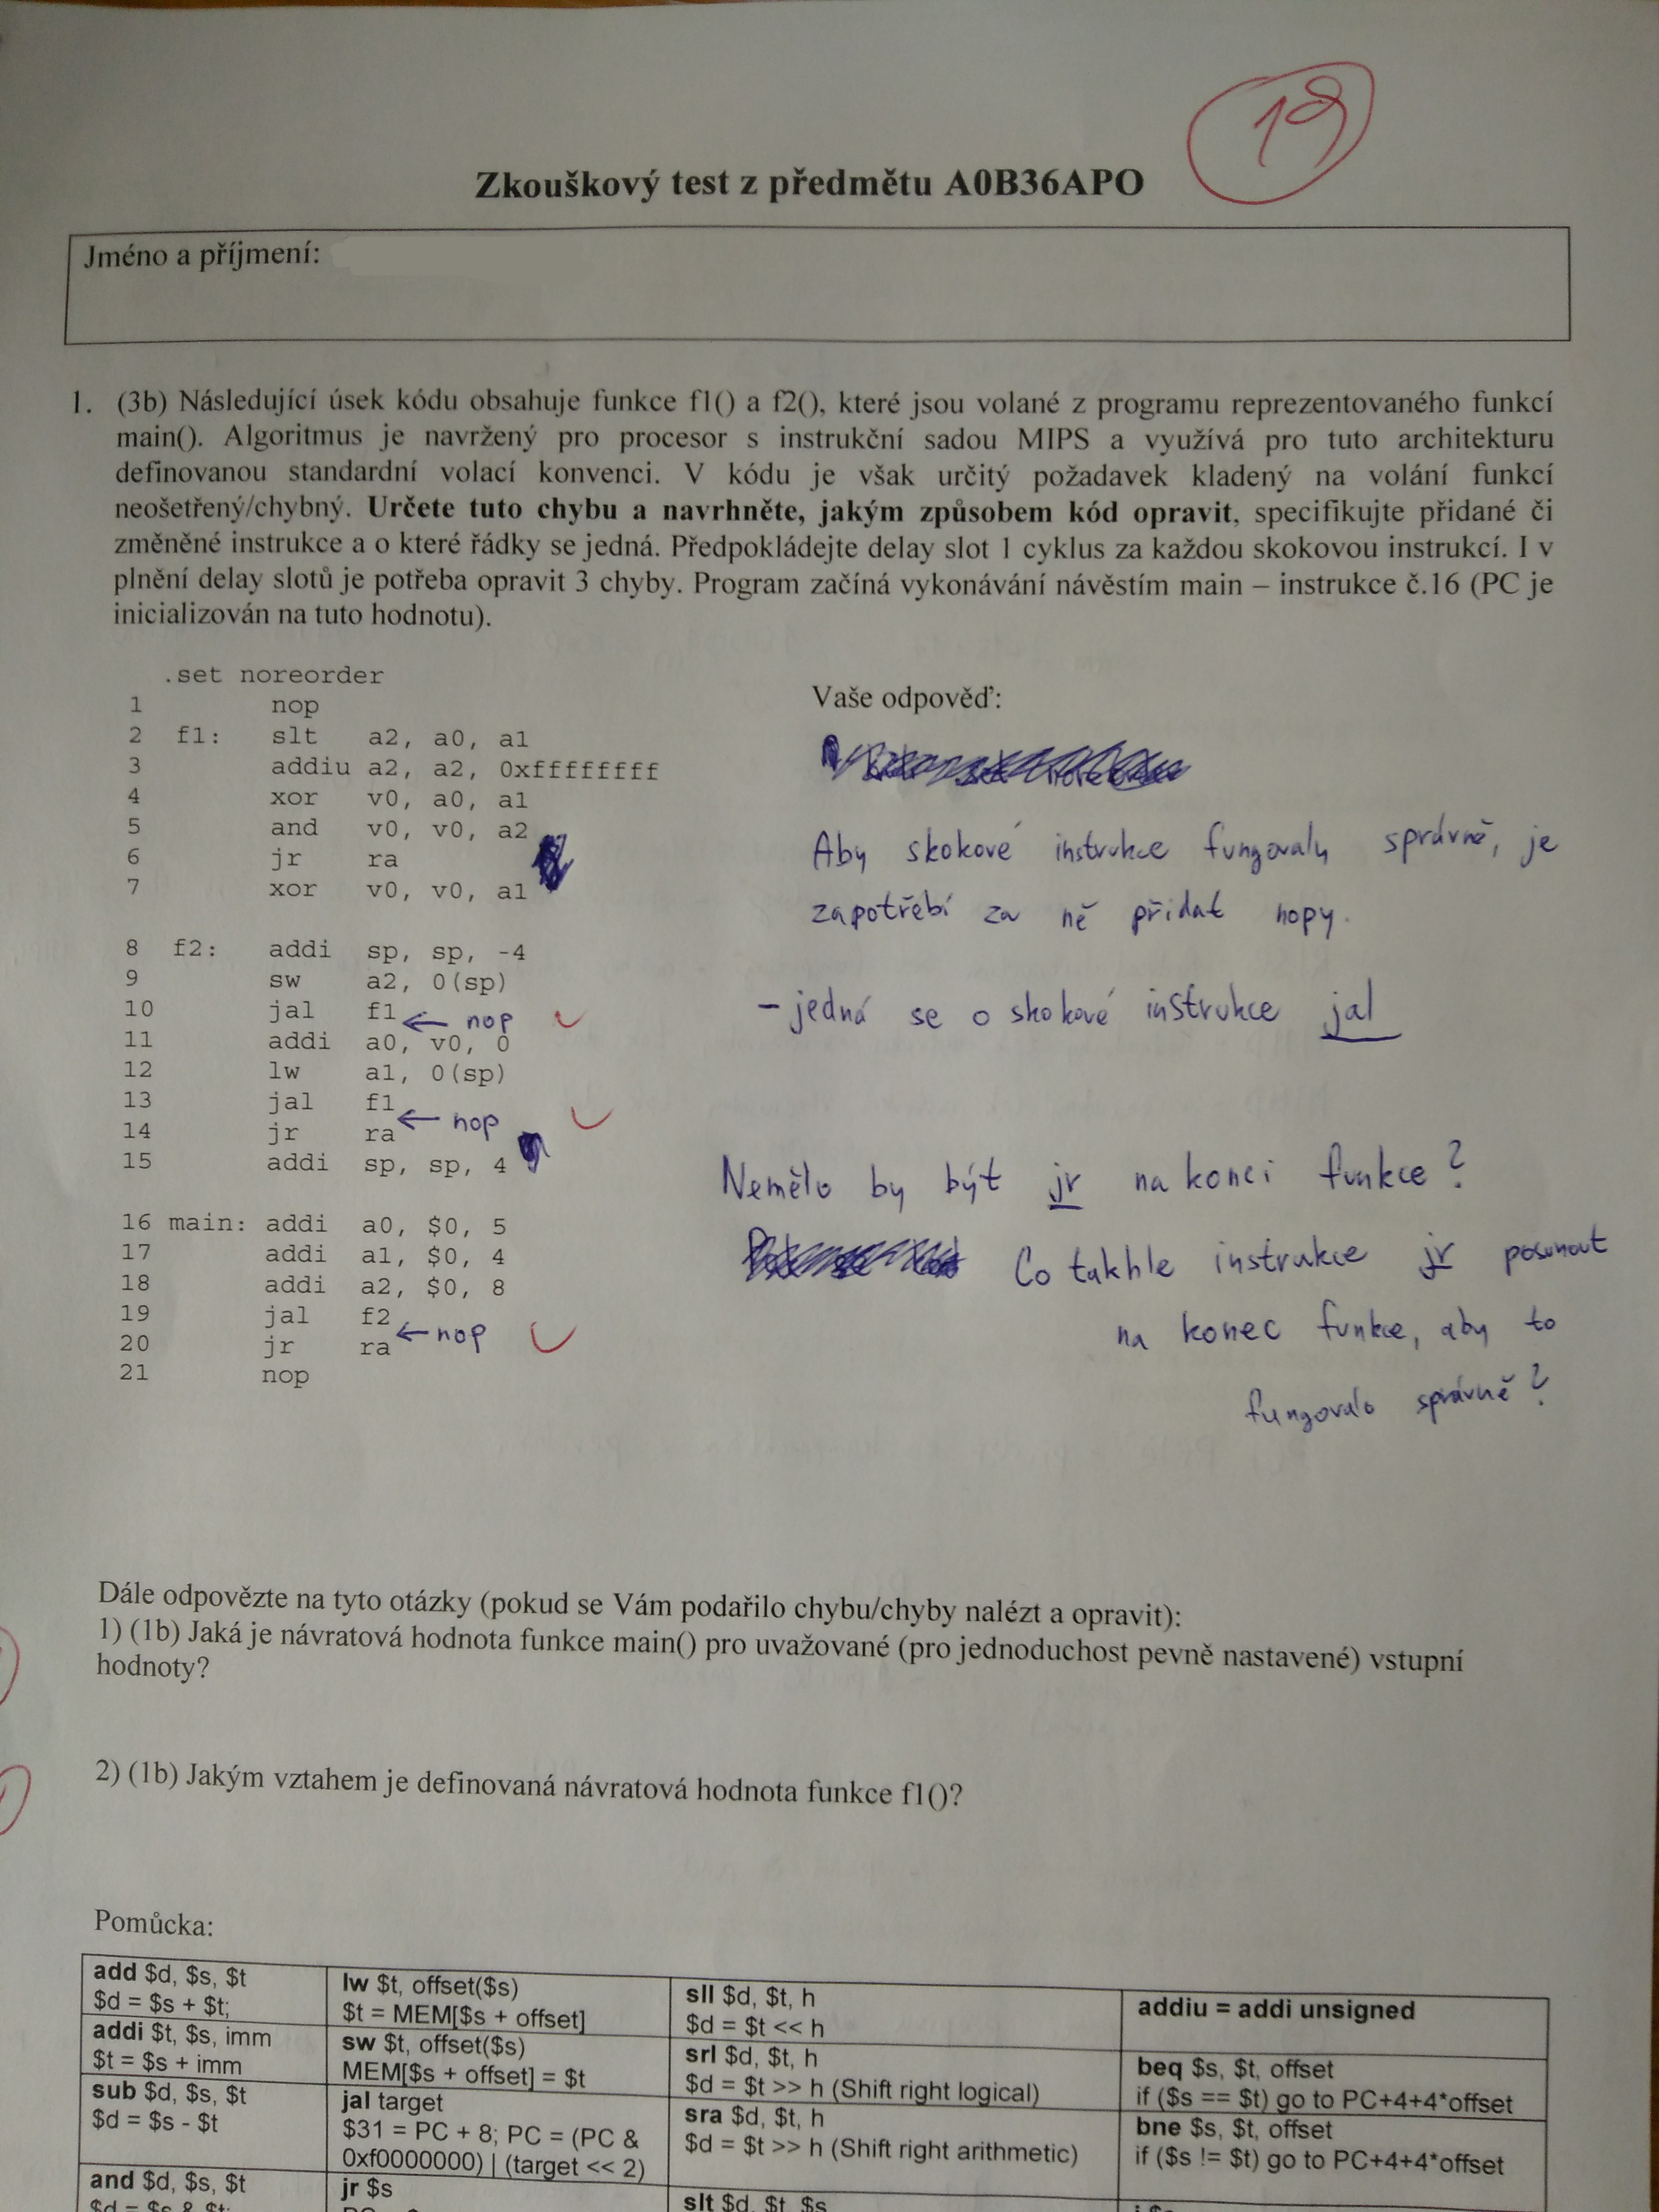 19
Zkouškový test z předmětu A0B36APO
Jméno a příjmení:
1. (3b) Následující úsek kódu obsahuje funkce f1() a f2(), které jsou volané z programu reprezentovaného funkcí
main(). Algoritmus je navržený pro procesor s instrukční sadou MIPS a využívá pro tuto architekturu
definovanou standardní volací konvenci. V kódu je však určitý požadavek kladený na volání funkcí
neošetřený/chybný. Určete tuto chybu a navrhněte, jakým způsobem kód opravit, specifikujte přidané či
změněné instrukce a o které řádky se jedná. Předpokládejte delay slot 1 cyklus za každou skokovou instrukcí. I v
plnění delay slotů je potřeba opravit 3 chyby. Program začíná vykonávání návěstím main – instrukce č.16 (PC je
inicializován na tuto hodnotu).
.set noreorder
1 nop
2 f1: slt a2, a0, a1
3 addiu a2, a2, 0xffffffff
4 xor v0, a0, a1
5 and v0, v0, a2
6 jr ra
7 xor v0, v0, a1
8 f2: addi sp, sp, -4
9 sw a2, 0(sp)
10 jal f1
← nop
11 addi a0, v0, 0
12 lw a1, 0(sp)
13 jal f1
← nop
14 jr ra
15 addi sp, sp, 4
16 main: addi a0, $0, 5
17 addi a1, $0, 4
18 addi a2, $0, 8
19 jal f2
← nop
20 jr ra
21 nop
Vaše odpověď:
Aby skokové instrukce fungovaly správně, je
zapotřebí za ně přidat nopy.
- jedná se o skokové instrukce jal
Nemělo by být jr na konci funkce?
Co takhle instrukce jr posunout
na konec funkce, aby to
fungovalo správně?
Dále odpovězte na tyto otázky (pokud se Vám podařilo chybu/chyby nalézt a opravit):
1) (1b) Jaká je návratová hodnota funkce main() pro uvažované (pro jednoduchost pevně nastavené) vstupní
hodnoty?
2) (1b) Jakým vztahem je definovaná návratová hodnota funkce f1()?
Pomůcka:
add $d, $s, $t
$d = $s + $t;
addi $t, $s, imm
$t = $s + imm
sub $d, $s, $t
$d = $s - $t
and $d, $s, $t
$d = $s & $t;
lw $t, offset($s)
$t = MEM[$s + offset]
sw $t, offset($s)
MEM[$s + offset] = $t
jal target
$31 = PC + 8; PC = (PC &
0xf0000000) | (target << 2)
jr $s
sll $d, $t, h
$d = $t << h
srl $d, $t, h
$d = $t >> h (Shift right logical)
sra $d, $t, h
$d = $t >> h (Shift right arithmetic)
slt $d, $t, $s
addiu = addi unsigned
beq $s, $t, offset
if ($s == $t) go to PC+4+4*offset
bne $s, $t, offset
if ($s != $t) go to PC+4+4*offset